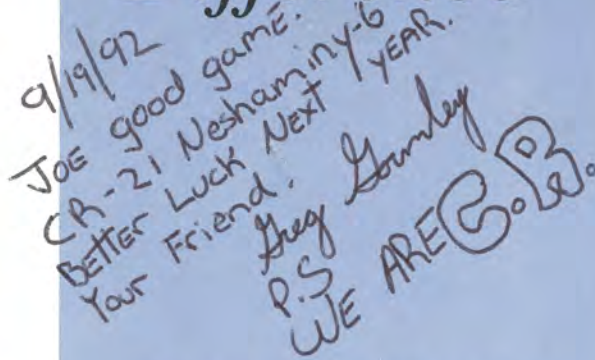 9/19/92
JOE good game.
CR-21 Neshaminy-6
BETTER LUCK NEXT YEAR.
Your Friend.
Greg Gormley
P.S
WE ARE C.R.